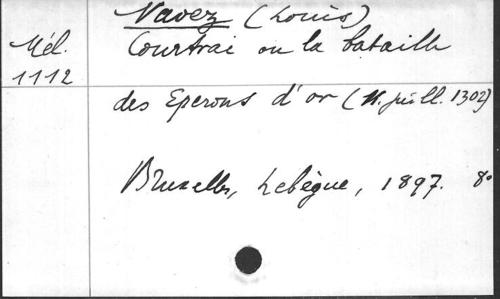 Navez (Louis)
Mél. 1112
Courtrai ou la bataille
des Eperons d'or (11. juill. 1302)
Bruxelles, Lebègue, 1897. 8º